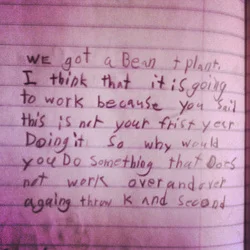 we got a Bean t plant.
I think that it is going
to work because you said
this is not your frist year
Doing it so why would
you Do something that Dors
not work over and over
againg throw K and second